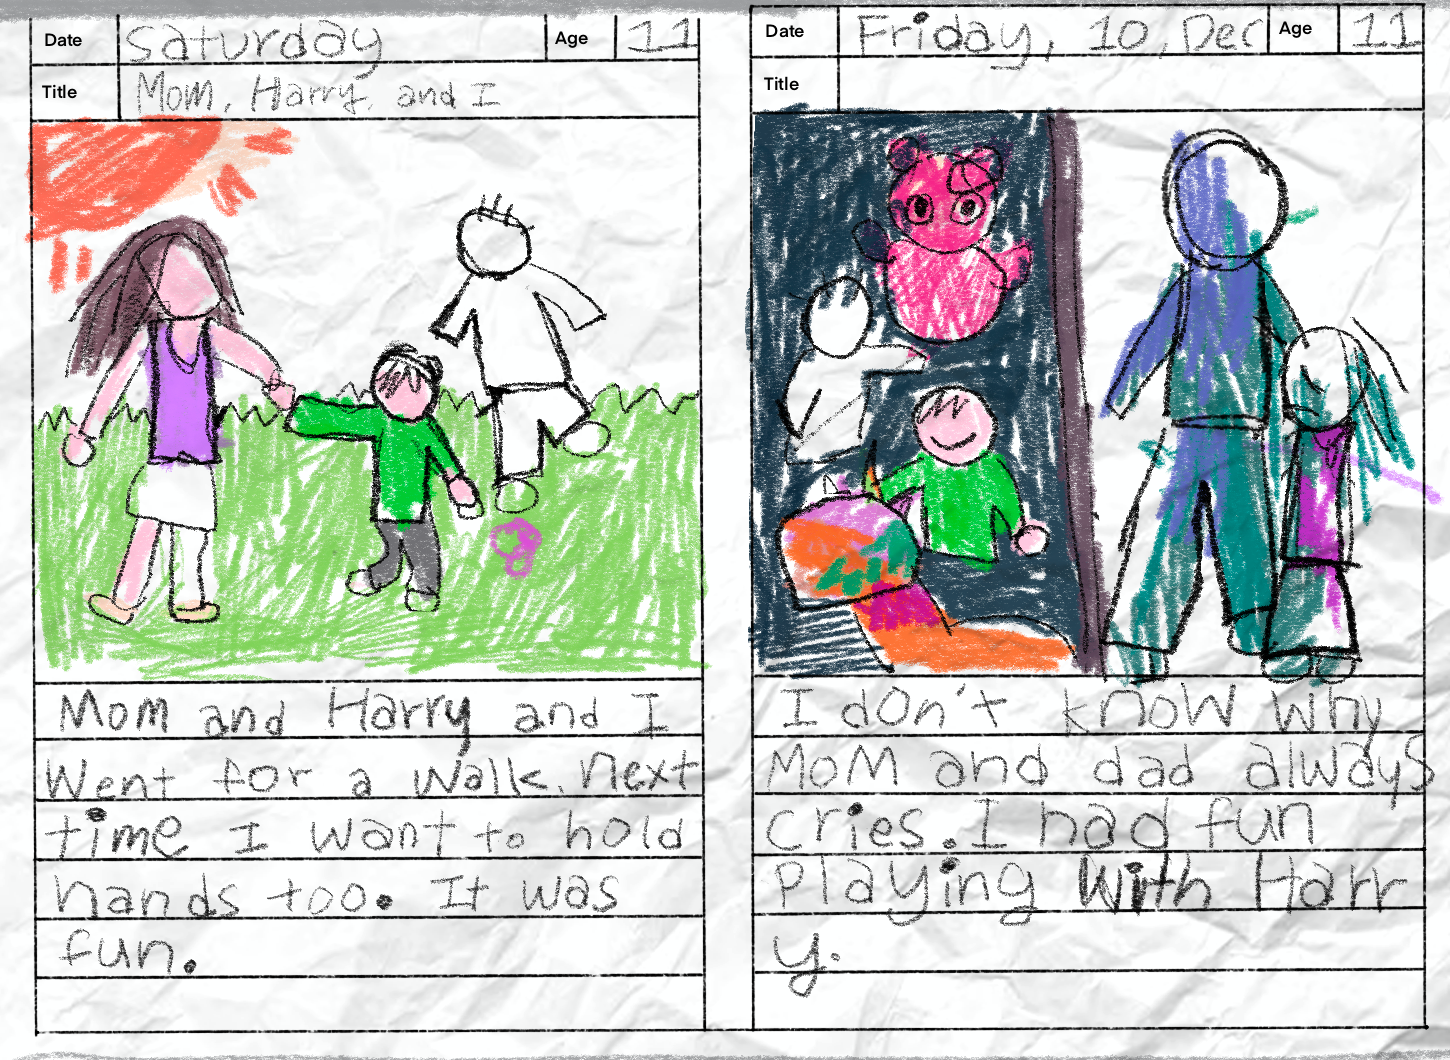 Date Saturday Age 11
Title Mom, Harry, and I
Mom and Harry and I
Went for a Walk. Next
time I want to hold
hands too. It was
fun.
Date Friday, 10, Dec Age 11
Title
I don't know why
MoM and dad always
cries. I had fun
Playing With Harr
y.